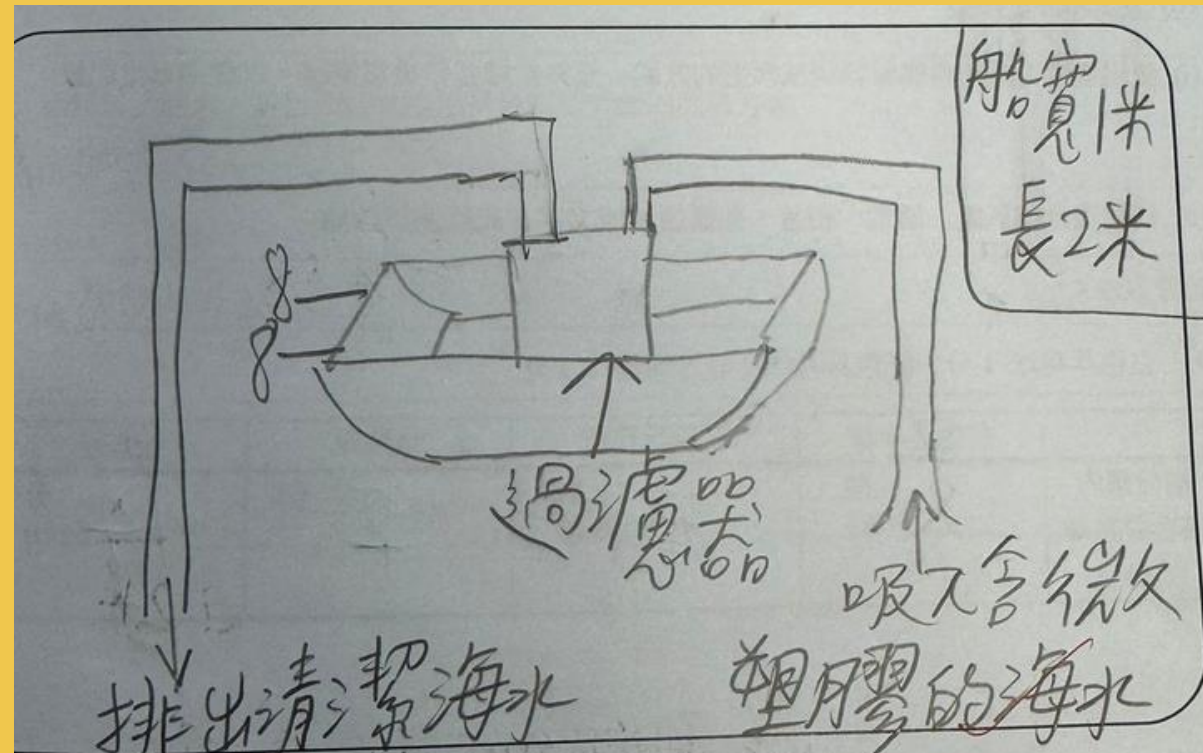 船寬1米
長2米
過濾器
吸入含微
塑膠的海水
排出清潔海水